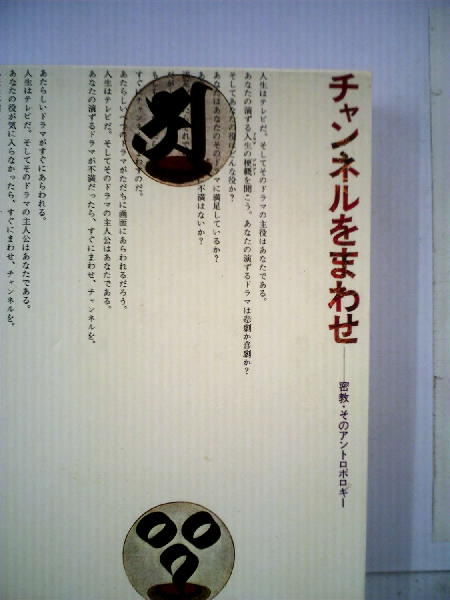 チャンネルをまわせ
──密教・そのアントロポロギー
人生はテレビだ。そしてそのドラマの主役はあなたである。
あなたの演ずる人生の梗概を聞こう。あなたの演ずるドラマは悲劇か喜劇か?
そしてあなたの役はどんな役か?
あなたはあなたのそのドラマに満足しているか?
不満はないか?
すぐに
あたらしい
ドラマがただちに画面にあらわれるだろう。
人生はテレビだ。そしてそのドラマの主人公はあなたである。
あなたの演ずるドラマが不満だったら、すぐにまわせ、チャンネルを。
あたらしいドラマがすぐにあらわれる。
人生はテレビだ。そしてそのドラマの主人公はあなたである。
あなたの役が気に入らなかったら、すぐにまわせ、チャンネルを。